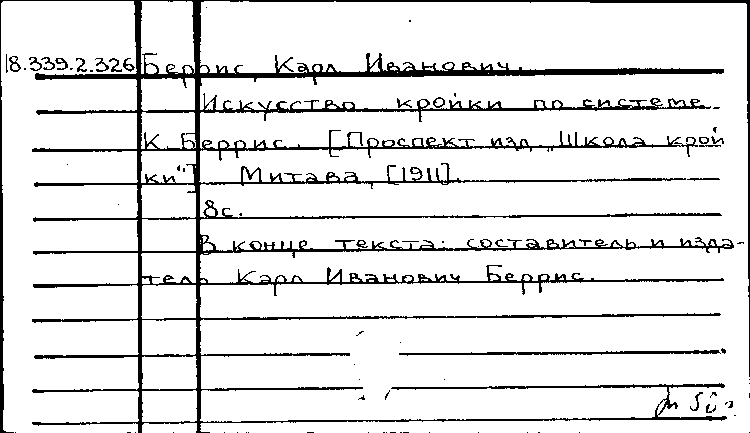 18.339.2.326 Беррис, Карл Иванович.
Искусство кройки по системе
К. Беррис. [Проспект изд. „Школа крой
ки"] Митава, [1911].
8с.
В конце текста: составитель и изда-
тель Карл Иванович Беррис.